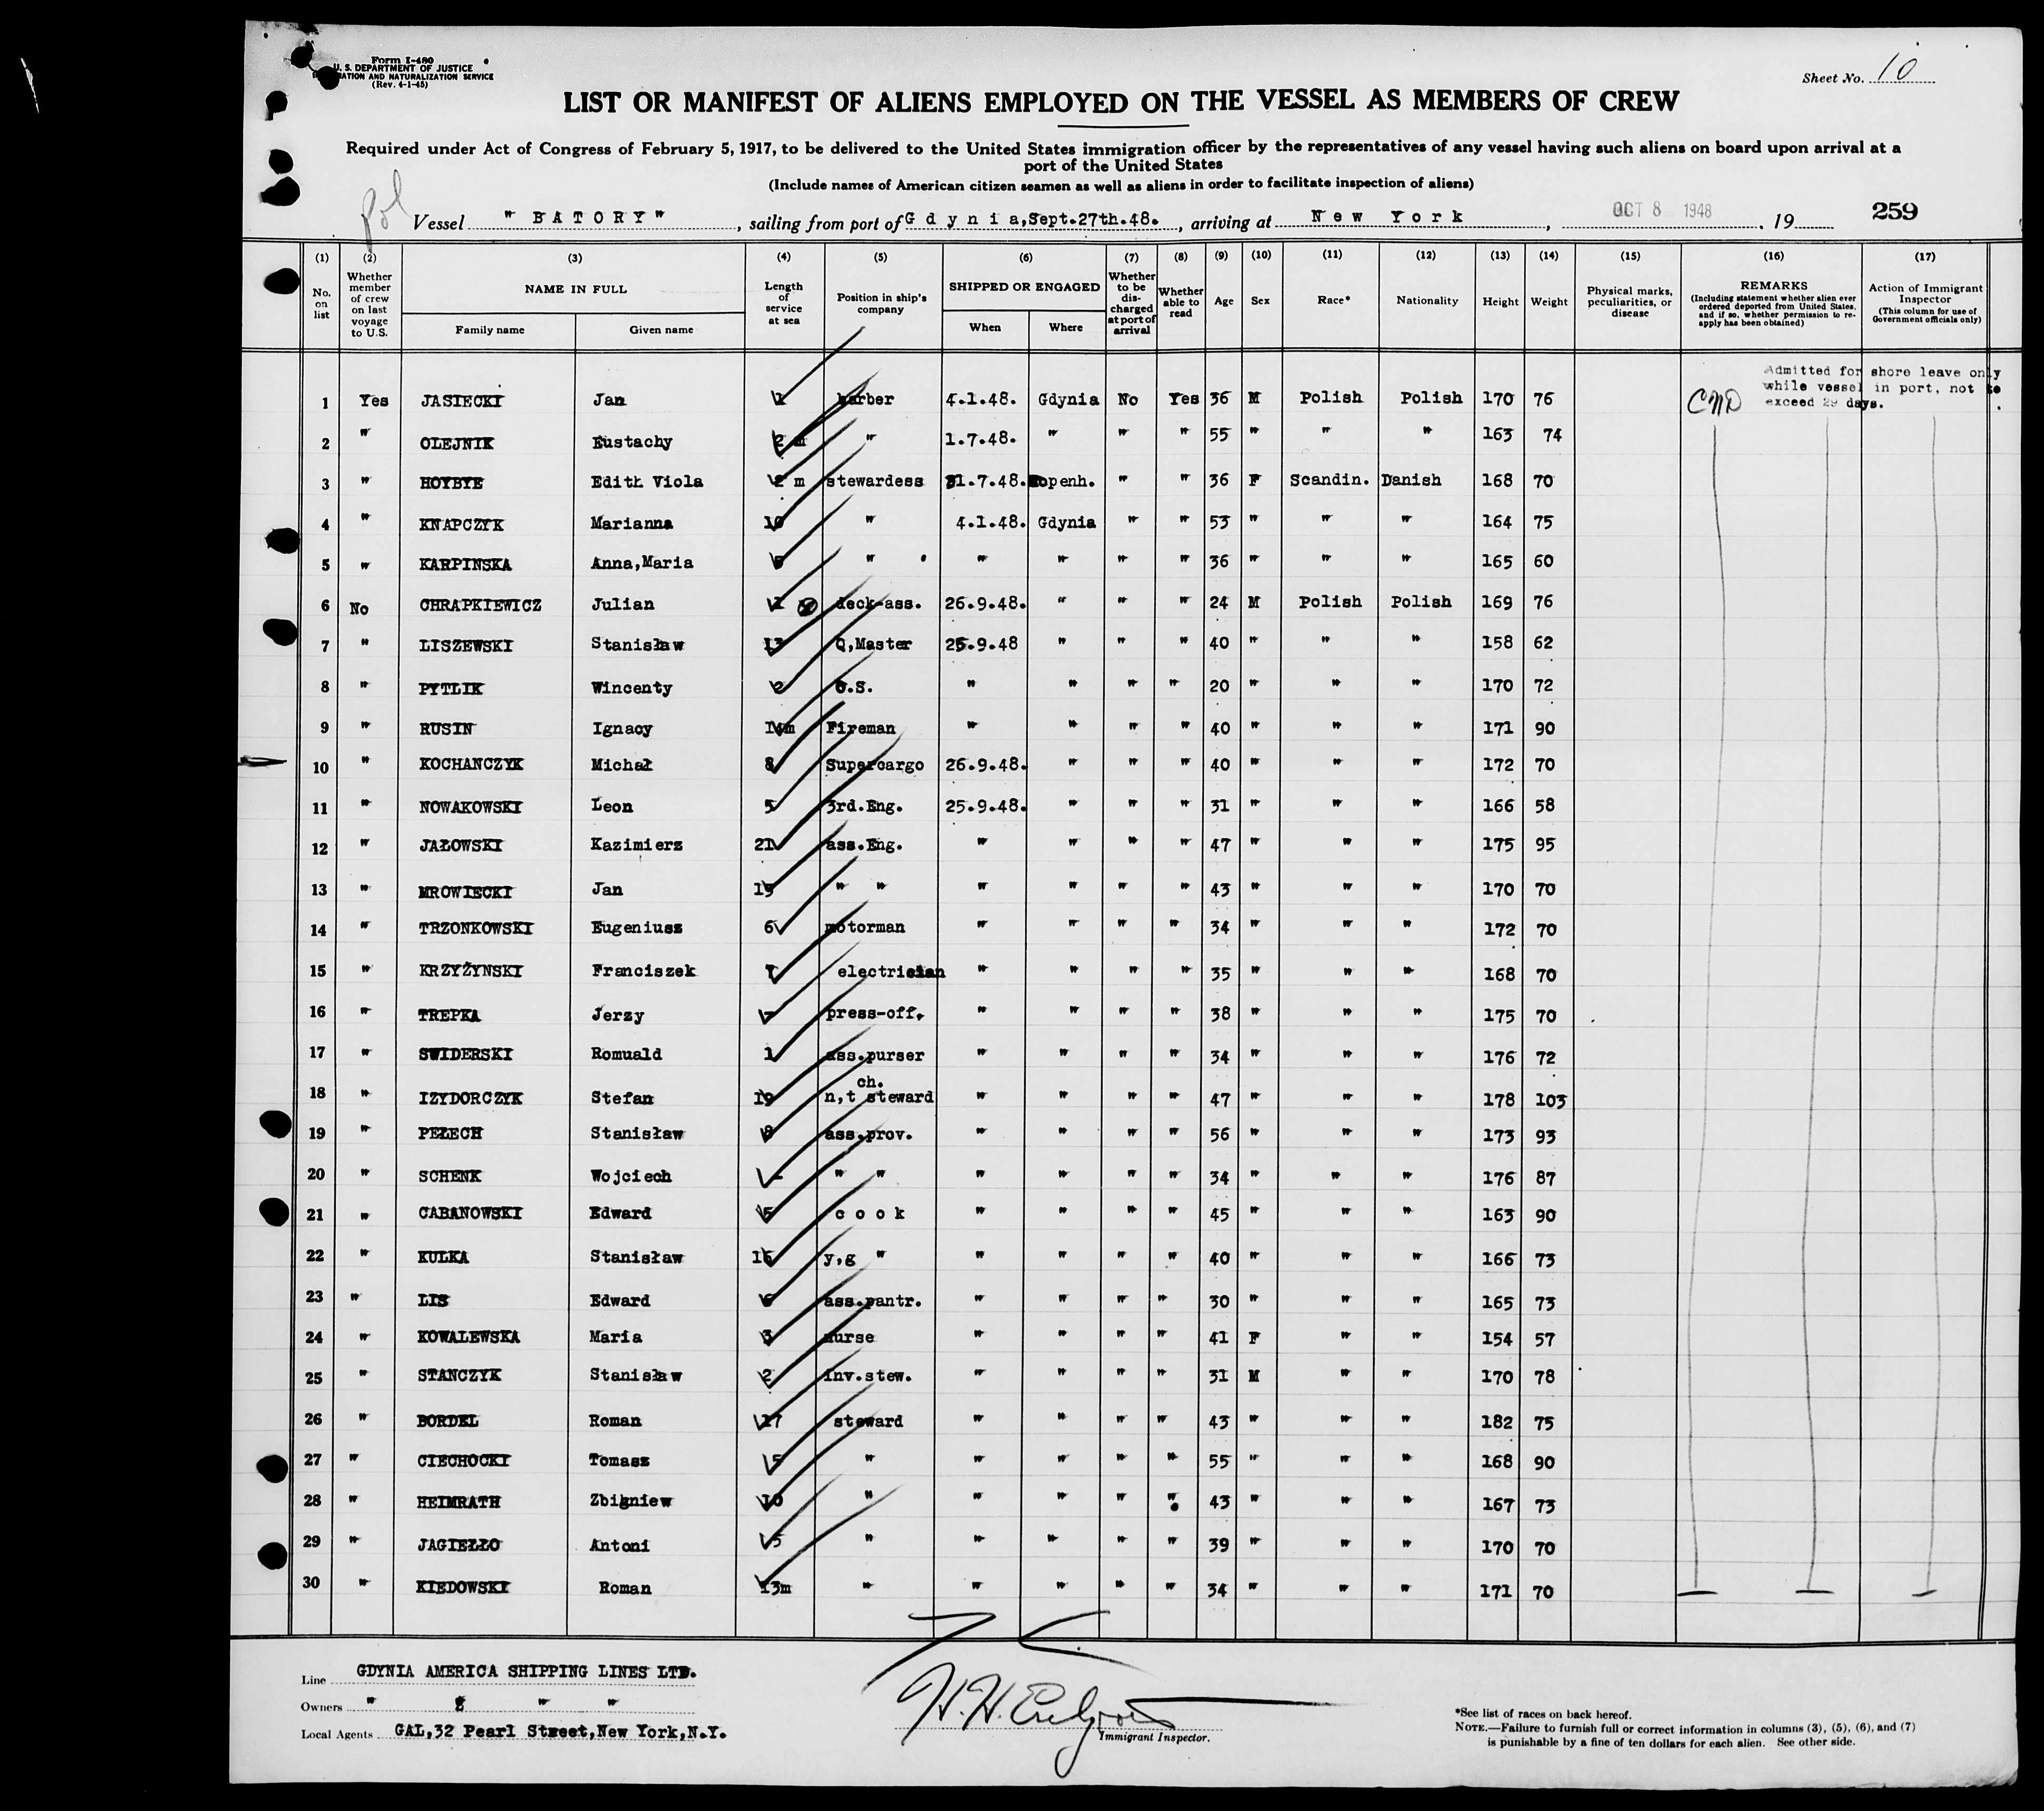 Form I-480
U. S. DEPARTMENT OF JUSTICE
RATION AND NATURALIZATION SERVICE
(Rev. 4-1-45)
Sheet No. 10
LIST OR MANIFEST OF ALIENS EMPLOYED ON THE VESSEL AS MEMBERS OF CREW
Required under Act of Congress of February 5, 1917, to be delivered to the United States immigration officer by the representatives of any vessel having such aliens on board upon arrival at a
port of the United States
(Include names of American citizen seamen as well as aliens in order to facilitate inspection of aliens)
Pol
Vessel "BATORY", sailing from port of Gdynia, Sept.27th.48., arriving at New York, OCT 8 1948, 19 259
(1) (2) (3) (4) (5) (6) (7) (8) (9) (10) (11) (12) (13) (14) (15) (16) (17)
No. on list Whether member of crew on last voyage to U.S. NAME IN FULL Family name Given name Length of service at sea Position in ship's company SHIPPED OR ENGAGED When Where Whether to be discharged at port of arrival Whether able to read Age Sex Race* Nationality Height Weight Physical marks, peculiarities, or disease REMARKS (Including statement whether alien ever ordered deported from United States, and if so, whether permission to reapply has been obtained) Action of Immigrant Inspector (This column for use of Government officials only)
Admitted for shore leave only
while vessel in port, not to
exceed 29 days.
1 Yes JASIECKI Jan 1 barber 4.1.48. Gdynia No Yes 36 M Polish Polish 170 76
2 " OLEJNIK Eustachy 2 m " 1.7.48. " " " 55 " " " 163 74
3 " HOYBYE Edith Viola 2 m stewardess 31.7.48. Kopenh. " " 36 F Scandin. Danish 168 70
4 " KNAPCZYK Marianna 10 " 4.1.48. Gdynia " " 53 " " " 164 75
5 " KARPINSKA Anna,Maria " " " " " 36 " " " 165 60
6 No CHRAPKIEWICZ Julian 1 deck-ass. 26.9.48. " " " 24 M Polish Polish 169 76
7 " LISZEWSKI Stanisław 13 Q,Master 25.9.48 " " " 40 " " " 158 62
8 " PYTLIK Wincenty 2 O.S. " " " " 20 " " " 170 72
9 " RUSIN Ignacy 14m Fireman " " " " 40 " " " 171 90
10 " KOCHANCZYK Michał 8 Supercargo 26.9.48. " " " 40 " " " 172 70
11 " NOWAKOWSKI Leon 5 3rd.Eng. 25.9.48. " " " 31 " " " 166 58
12 " JAŁOWSKI Kazimierz 21 ass.Eng. " " " " 47 " " " 175 95
13 " MROWIECKI Jan 19 " " " " " " 43 " " " 170 70
14 " TRZONKOWSKI Eugeniusz 6 motorman " " " " 34 " " " 172 70
15 " KRZYŻYNSKI Franciszek electrician " " " " 35 " " " 168 70
16 " TREPKA Jerzy - press-off. " " " " 38 " " " 175 70
17 " SWIDERSKI Romuald 1 ass.purser " " " " 34 " " " 176 72
18 " IZYDORCZYK Stefan 19 ch. n,t steward " " " " 47 " " " 178 103
19 " PEŁECH Stanisław 8 ass.prov. " " " " 56 " " " 173 93
20 " SCHENK Wojciech - " " " " " " 34 " " " 176 87
21 " CABANOWSKI Edward 5 cook " " " " 45 " " " 163 90
22 " KULKA Stanisław 16 y,g " " " " " 40 " " " 166 73
23 " LIS Edward 6 ass.pantr. " " " " 30 " " " 165 73
24 " KOWALEWSKA Maria 3 nurse " " " " 41 F " " 154 57
25 " STANCZYK Stanisław 2 inv.stew. " " " " 31 M " " 170 78
26 " BORDEL Roman 17 steward " " " " 43 " " " 182 75
27 " CIECHOCKI Tomasz 5 " " " " " 55 " " " 168 90
28 " HEIMRATH Zbigniew 10 " " " " " 43 " " " 167 73
29 " JAGIEŁŁO Antoni 5 " " " " " 39 " " " 170 70
30 " KIEDOWSKI Roman 13m " " " " " 34 " " " 171 70
Line GDYNIA AMERICA SHIPPING LINES LTD.
Owners " " " "
Local Agents GAL,32 Pearl Street,New York,N.Y.
Immigrant Inspector.
*See list of races on back hereof.
NOTE.—Failure to furnish full or correct information in columns (3), (5), (6), and (7)
is punishable by a fine of ten dollars for each alien. See other side.